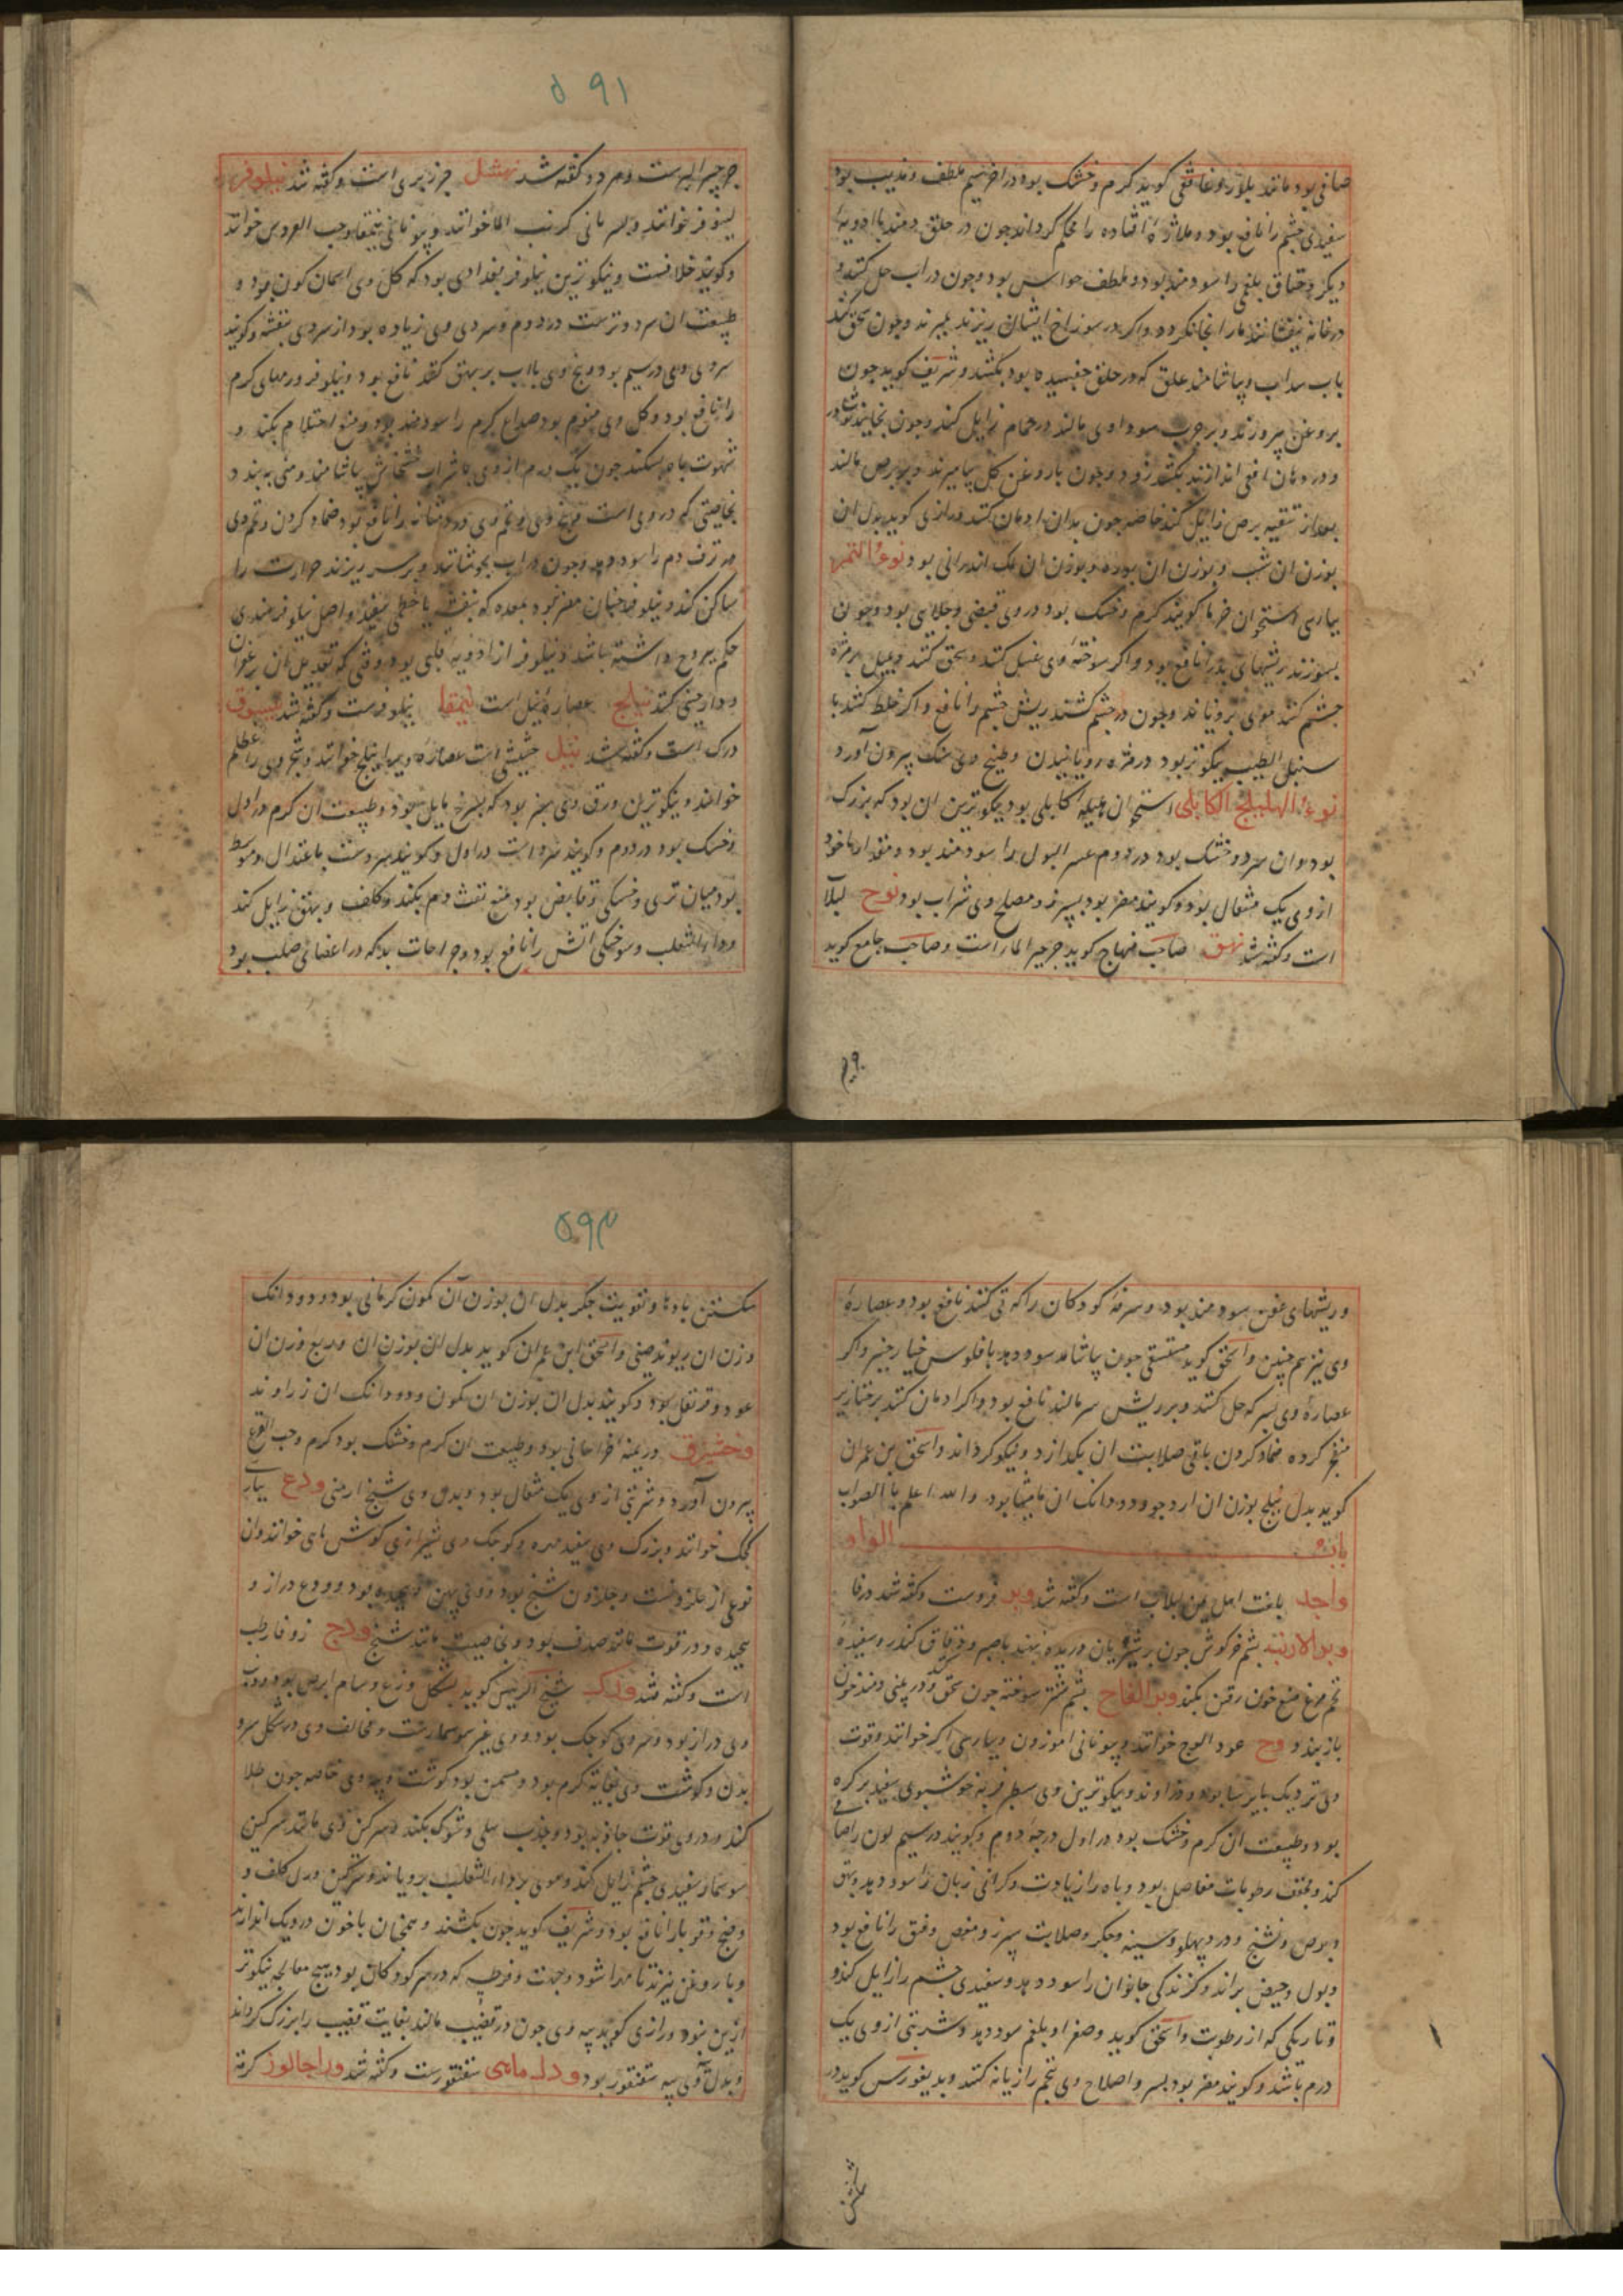 صافی بود مانند بلور و غافقی کوید کرم و خشک بود در آخر سیم ملطف و مذیب بود
سفیدی چشم را نافع بود و ملاذه افتاده را محکم کرداند چون در حلق دمند با ادویهٔ
دیکر و خناق بلغمی را سودمند بود و ملطف حواس بود و چون در آب حل کنند و
در خانه بیفشانند مار انجا نکردد و اکر در سوراخ ایشان ریزند بمیرند و چون سحق کنند
بآب سداب و بیاشامند علق که در حلق چفسیده بود بکشد و شریف کوید چون
بروغن بپروزند و بر جرب سوداوی مالند در حمام زایل کند و چون بخایند
و در دهان افعی اندازند بکشد زود و چون با روغن کل بیامیزند و بر برص مالند
بعد از تنقیه برص زایل کند خاصه چون بدان ادمان کنند و رازی کوید بدل ان
بوزن ان شب و بوزن ان بوره و بوزن ان نمک اندرانی بود نوی التمر
بپارسی استخوان خرما کویند کرم و خشک بود در وی قبضی و جلایی بود و چون
بسوزند ریشهای بد را نافع بود و اکر سوختهٔ وی غسل کنند و سحق کنند و بمیل بر مژهٔ
چشم کشند موی برویاند و چون در چشم کشند ریش چشم را نافع و اکر خلط کنند با
سنبل الطیب نیکوتر بود در مژه رویانیدن و طبیخ وی سنک بیرون آورد
نوی الهلیلج الکابلی استخوان هلیله کابلی بود نیکوترین ان بود که بزرک
بود و ان سرد و خشک بود در دوم عسر البول را سودمند بود و مقدار ماخوذ
از وی یک مثقال بود و کویند مضر بود بسپرز و مصلح وی شراب بود نوح لبلاب
است و کفته شد نهق صاحب منهاج کوید جرجیر الماء است و صاحب جامع کوید
۵۹۱
جرجیر البر است و هر دو کفته شد نهشل جزر بری است و کفته شد نیلوفر
لینوفر خوانند و بسریانی کرنب الما خوانند و بیونانی نیقا و حب العروس خوانند
و کویند خلافست و نیکوترین نیلوفر بغدادی بود که کل وی اسمان کون بود و
طبیعت ان سرد و ترست در دوم و سردی وی زیاده بود از سردی بنفشه و کویند
سردی وی در سیم بود و بیخ وی با آب بر بهق کنند نافع بود و نیلوفر ورمهای کرم
را نافع بود و کل وی منوم بود صداع کرم را سودمند بود و منع احتلام بکند و
شهوت باه بشکند چون یک درم از وی با شراب خشخاش بیاشامند و منی ببندد
بخاصیتی که در وی است و بیخ وی و تخم وی درد مثانه را نافع بود ضماد کردن و تخم وی
نزف دم را سود دهد و چون در آب بجوشانند و بر سر ریزند حرارت را
ساکن کند و نیلوفر چنان مضر نبود بمعده که بنفشه یا خطمی سفید و اصل نیلوفر هندی
حکم یبروح داشته باشد و نیلوفر از ادویه قلبی بود وقتی که تعدیل ان بزعفران
و دارچینی کنند نیلج عصارهٔ نیل است نیمفا نیلوفرست و کفته شد نیسوق
درک است و کفته شد نیل حشیشی است عصارهٔ ویرا نیلج خوانند و شجر وی را عظلم
خوانند و نیکوترین ورق وی سبز بود که بسرخ مایل بود و طبیعت ان کرم در اول
و خشک بود در دوم و کویند سرد است در اول و کویند سردست باعتدال و متوسط
بود میان تری و خشکی و قابض بود منع نفث دم بکند و کلف و بهق زایل کند
و داء الثعلب و سوختکی اتش را نافع بود و جراحات بد که در اعضای صلب بود
و ریشهای عفن سودمند بود و سرفه کودکان را که قی کنند نافع بود و عصارهٔ
وی نیز همچنین و اسحق کوید مستسقی چون بیاشامد سود دهد با فلوس خیارچنبر و اکر
عصارهٔ وی بسرکه حل کنند و بر ریش سر مالند نافع بود و اکر ادمان کنند بر خنازیر
منفجر کرده ضماد کردن باقی صلابت ان بکدازد و نیکو کرداند و اسحق بن عمران
کوید بدل نیلج بوزن ان ارد جو و دو دانک ان مامیثا بود والله اعلم بالصواب
باب الواو
واجد بلغت اهل یمن لبلاب است و کفته شد وبد فروست و کفته شد در فا
وبر الارنب پشم خرکوش چون بر شریان دریده نهند با صبر و دقاق کندر و سفیدهٔ
تخم مرغ منع خون رفتن بکند وبر الفاح پشم شتر سوخته چون سحق کنند و در بینی دمند خون
باز بندد وج عود الوج خوانند و بیونانی اموزون و بپارسی اکر خوانند و قوت
وی نزدیک بایرسا بود و زراوند و نیکوترین وی سطبر فربه خوشبوی سفید پر کره
بود و طبیعت ان کرم و خشک بود در اول درجهٔ دوم و کویند در سیم لون را صافی
کند و مجفف رطوبات مفاصل بود و باه را زیادت و کرانی زبان را سود دهد و بهق
و برص و تشنج و درد پهلو و سینه و جکر و صلابت سپرز و مغص و فتق را نافع بود
و بول و حیض براند و کزندکی جانوران را سود دهد و سفیدی چشم را زایل کند و
و تاریکی که از رطوبت و اسحق کوید و صفرا و بلغم سود دهد و شربتی از وی یک
درم باشد و کویند مضر بود بسر و اصلاح وی بتخم رازیانه کنند و دیسقوریدوس کوید در
۵۹۲
شکستن بادها و تقویت جکر بدل ان بوزن آن کمون کرمانی بود و دو دانک
وزن ان ریوند صینی و اسحق ابن عمران کوید بدل ان بوزن ان و ربع وزن ان
عود و قرنفل بود و کویند بدل ان بوزن ان کمون و دو دانک ان زراوند
وخشیزق درمنه خراسانی بود و طبیعت ان کرم و خشک بود کرم و حب القرع
بیرون آورد و شربتی از وی یک مثقال بود و بدل وی شیخ ارمنی ودع بپارسی
کجک خوانند و بزرک وی سفید مهره و کوچک وی شیرازی کوش ماهی خوانند و ان
نوعی از حلزونست و حلزون شنج بود و وی پهن و پیچیده بود و ودع دراز و
پیچیده و در قوت مانند صدف بود و بخاصیت مانند شنج ودح زوفا رطب
است و کفته شد ورک شیخ الرئیس کوید بشکل وزغ و سام ابرص بود و دنب
وی دراز بود و سر وی کوچک بود و وی غیر سوسمارست و مخالف وی در شکل سر و
بدن و کوشت وی بغایت کرم بود و مسمن بود کوشت و پیه وی خاصه چون طلا
کنند و در وی قوت جاذبه بود و جذب سلی و شوک بکند و سرکین وی مانند سرکین
سوسمار سفیدی چشم زایل کند و موی بر داء الثعلب برویاند و سرکین ورل کلف و
و نمش و قوبا را نافع بود و شریف کوید چون بکشند و همچنان با خون در دیک اندازند
و با روغن بپزند تا مهرا شود و جهت قرحهٔ که در سر کودکان بود هیچ معالجه نیکوتر
ازین نبود و رازی کوید پیه وی چون در قضیب مالند بغایت قضیب را بزرک کرداند
و بدل وی پیه سقنقور بود ورل مائی سقنقورست و کفته شد وراجالوز کرمه